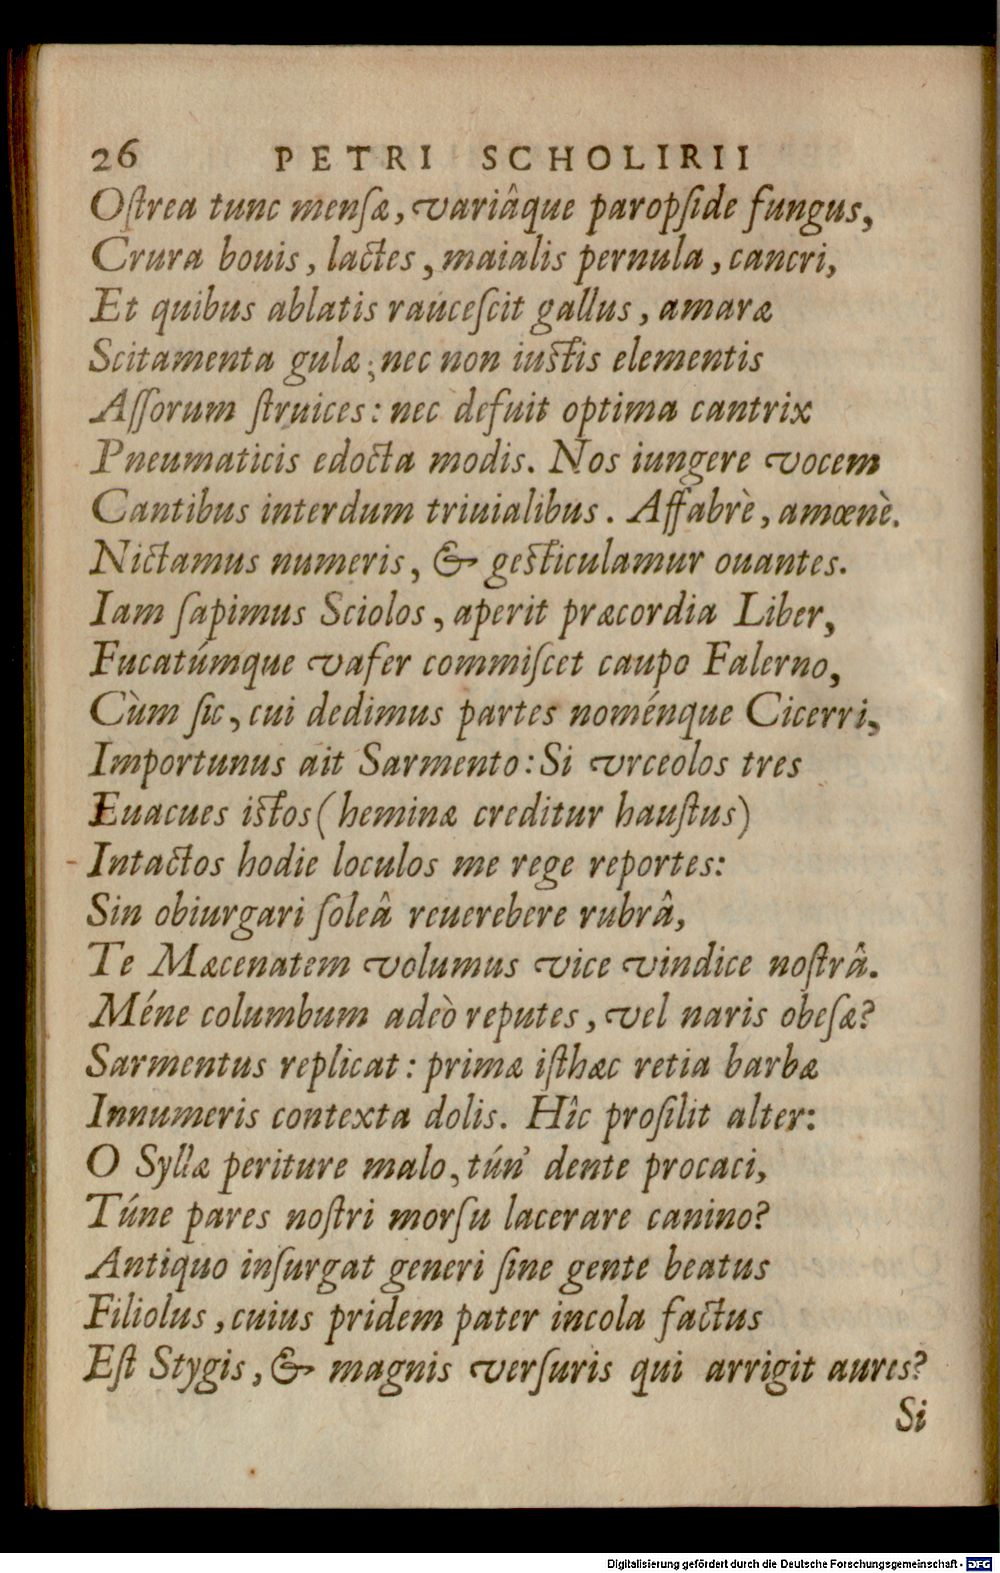 26 PETRI SCHOLIRII
Oſtrea tunc menſæ, variâque paropſide fungus,
Crura bouis, lactes, maialis pernula, cancri,
Et quibus ablatis rauceſcit gallus, amaræ
Scitamenta gulæ; nec non iuſtis elementis
Aſſorum ſtruices: nec defuit optima cantrix
Pneumaticis edocta modis. Nos iungere vocem
Cantibus interdum triuialibus. Affabrè, amœnè.
Nictamus numeris, & geſticulamur ouantes.
Iam ſapimus Sciolos, aperit præcordia Liber,
Fucatúmque vafer commiſcet caupo Falerno,
Cùm ſic, cui dedimus partes noménque Cicerri,
Importunus ait Sarmento: Si vrceolos tres
Euacues iſtos (heminæ creditur hauſtus)
Intactos hodie loculos me rege reportes:
Sin obiurgari ſoleâ reuerebere rubrâ,
Te Mæcenatem volumus vice vindice noſtrâ.
Méne columbum adeò reputes, vel naris obeſæ?
Sarmentus replicat: primæ iſthæc retia barbæ
Innumeris contexta dolis. Hîc proſilit alter:
O Syllæ periture malo, tún' dente procaci,
Túne pares noſtri morſu lacerare canino?
Antiquo inſurgat generi ſine gente beatus
Filiolus, cuius pridem pater incola factus
Eſt Stygis, & magnis verſuris qui arrigit aures?
Si
Digitalisierung gefördert durch die Deutsche Forschungsgemeinschaft - DFG